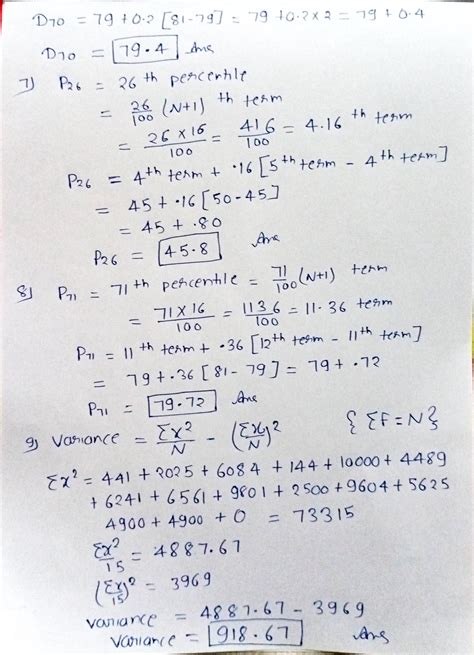 D70 = 79 + 0.2 [81-79] = 79 + 0.2 x 2 = 79 + 0.4
D70 = 79.4 Ans
7) P26 = 26 th percentile
= 26/100 (N+1) th term
= 26 x 16/100 = 416/100 = 4.16 th term
P26 = 4th term + .16 [5th term - 4th term]
= 45 + .16 [50-45]
= 45 + .80
P26 = 45.8 Ans
8) P71 = 71 th percentile = 71/100 (N+1) term
= 71 x 16/100 = 1136/100 = 11.36 term
P71 = 11 th term + .36 [12th term - 11th term]
= 79 + .36 [81-79] = 79 + .72
P71 = 79.72 Ans
9) Variance = Σx²/N - (Σx/N)² {ΣF = N}
Σx² = 441 + 2025 + 6084 + 144 + 10000 + 4489
+ 6241 + 6561 + 9801 + 2500 + 9604 + 5625
4900 + 4900 + 0 = 73315
Σx²/15 = 4887.67
(Σx/15)² = 3969
variance = 4887.67 - 3969
variance = 918.67 Ans